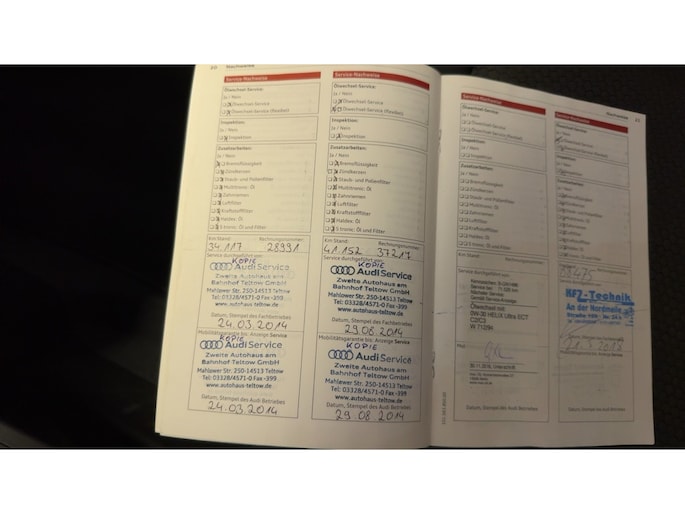 20 Nachweise
Service-Nachweise
Ölwechsel-Service:
Ja / Nein
Ölwechsel-Service
Ölwechsel-Service (flexibel)
Inspektion:
Ja / Nein
Inspektion
Zusatzarbeiten:
Ja / Nein
Bremsflüssigkeit
Zündkerzen
Staub- und Pollenfilter
Multitronic: Öl
Zahnriemen
Luftfilter
Kraftstofffilter
Haldex: Öl
S tronic: Öl und Filter
Km Stand: Rechnungsnummer:
34.117 28991
Service durchgeführt von:
KOPIE
Audi Service
Zweite Autohaus am
Bahnhof Teltow GmbH
Mahlower Str. 250-14513 Teltow
Tel: 03328/4571-0 Fax -399
www.autohaus-teltow.de
Datum, Stempel des Fachbetriebes
24.03.2014
Mobilitätsgarantie bis: Anzeige Service
KOPIE
Audi Service
Zweite Autohaus am
Bahnhof Teltow GmbH
Mahlower Str. 250-14513 Teltow
Tel: 03328/4571-0 Fax -399
www.autohaus-teltow.de
Datum, Stempel des Audi Betriebes
24.03.2014
Service-Nachweise
Ölwechsel-Service:
Ja / Nein
Ölwechsel-Service
Ölwechsel-Service (flexibel)
Inspektion:
Ja / Nein
Inspektion
Zusatzarbeiten:
Ja / Nein
Bremsflüssigkeit
Zündkerzen
Staub- und Pollenfilter
Multitronic: Öl
Zahnriemen
Luftfilter
Kraftstofffilter
Haldex: Öl
S tronic: Öl und Filter
Km Stand: Rechnungsnummer:
41.152 37217
Service durchgeführt von:
KOPIE
Audi Service
Zweite Autohaus am
Bahnhof Teltow GmbH
Mahlower Str. 250-14513 Teltow
Tel: 03328/4571-0 Fax -399
www.autohaus-teltow.de
Datum, Stempel des Fachbetriebes
29.08.2014
Mobilitätsgarantie bis: Anzeige Service
KOPIE
Audi Service
Zweite Autohaus am
Bahnhof Teltow GmbH
Mahlower Str. 250-14513 Teltow
Tel: 03328/4571-0 Fax -399
www.autohaus-teltow.de
Datum, Stempel des Audi Betriebes
29.08.2014
Nachweise 21
Service-Nachweise
Ölwechsel-Service:
Ja / Nein
Ölwechsel-Service
Ölwechsel-Service (flexibel)
Inspektion:
Ja / Nein
Inspektion
Zusatzarbeiten:
Ja / Nein
Bremsflüssigkeit
Zündkerzen
Staub- und Pollenfilter
Multitronic: Öl
Zahnriemen
Luftfilter
Kraftstofffilter
Haldex: Öl
S tronic: Öl und Filter
Service durchgeführt von:
Ölwechsel mit:
0W-30 HELIX Ultra ECT
C2/C3
W 712/94
Datum, Stempel des Audi Betriebes
Service-Nachweise
Ölwechsel-Service:
Ja / Nein
Ölwechsel-Service
Ölwechsel-Service (flexibel)
Inspektion:
Ja / Nein
Inspektion
Zusatzarbeiten:
Ja / Nein
Bremsflüssigkeit
Zündkerzen
Staub- und Pollenfilter
Multitronic: Öl
Zahnriemen
Luftfilter
Kraftstofffilter
Haldex: Öl
S tronic: Öl und Filter
KFZ-Technik
An der Nordmeile
Datum, Stempel des Audi Betriebes